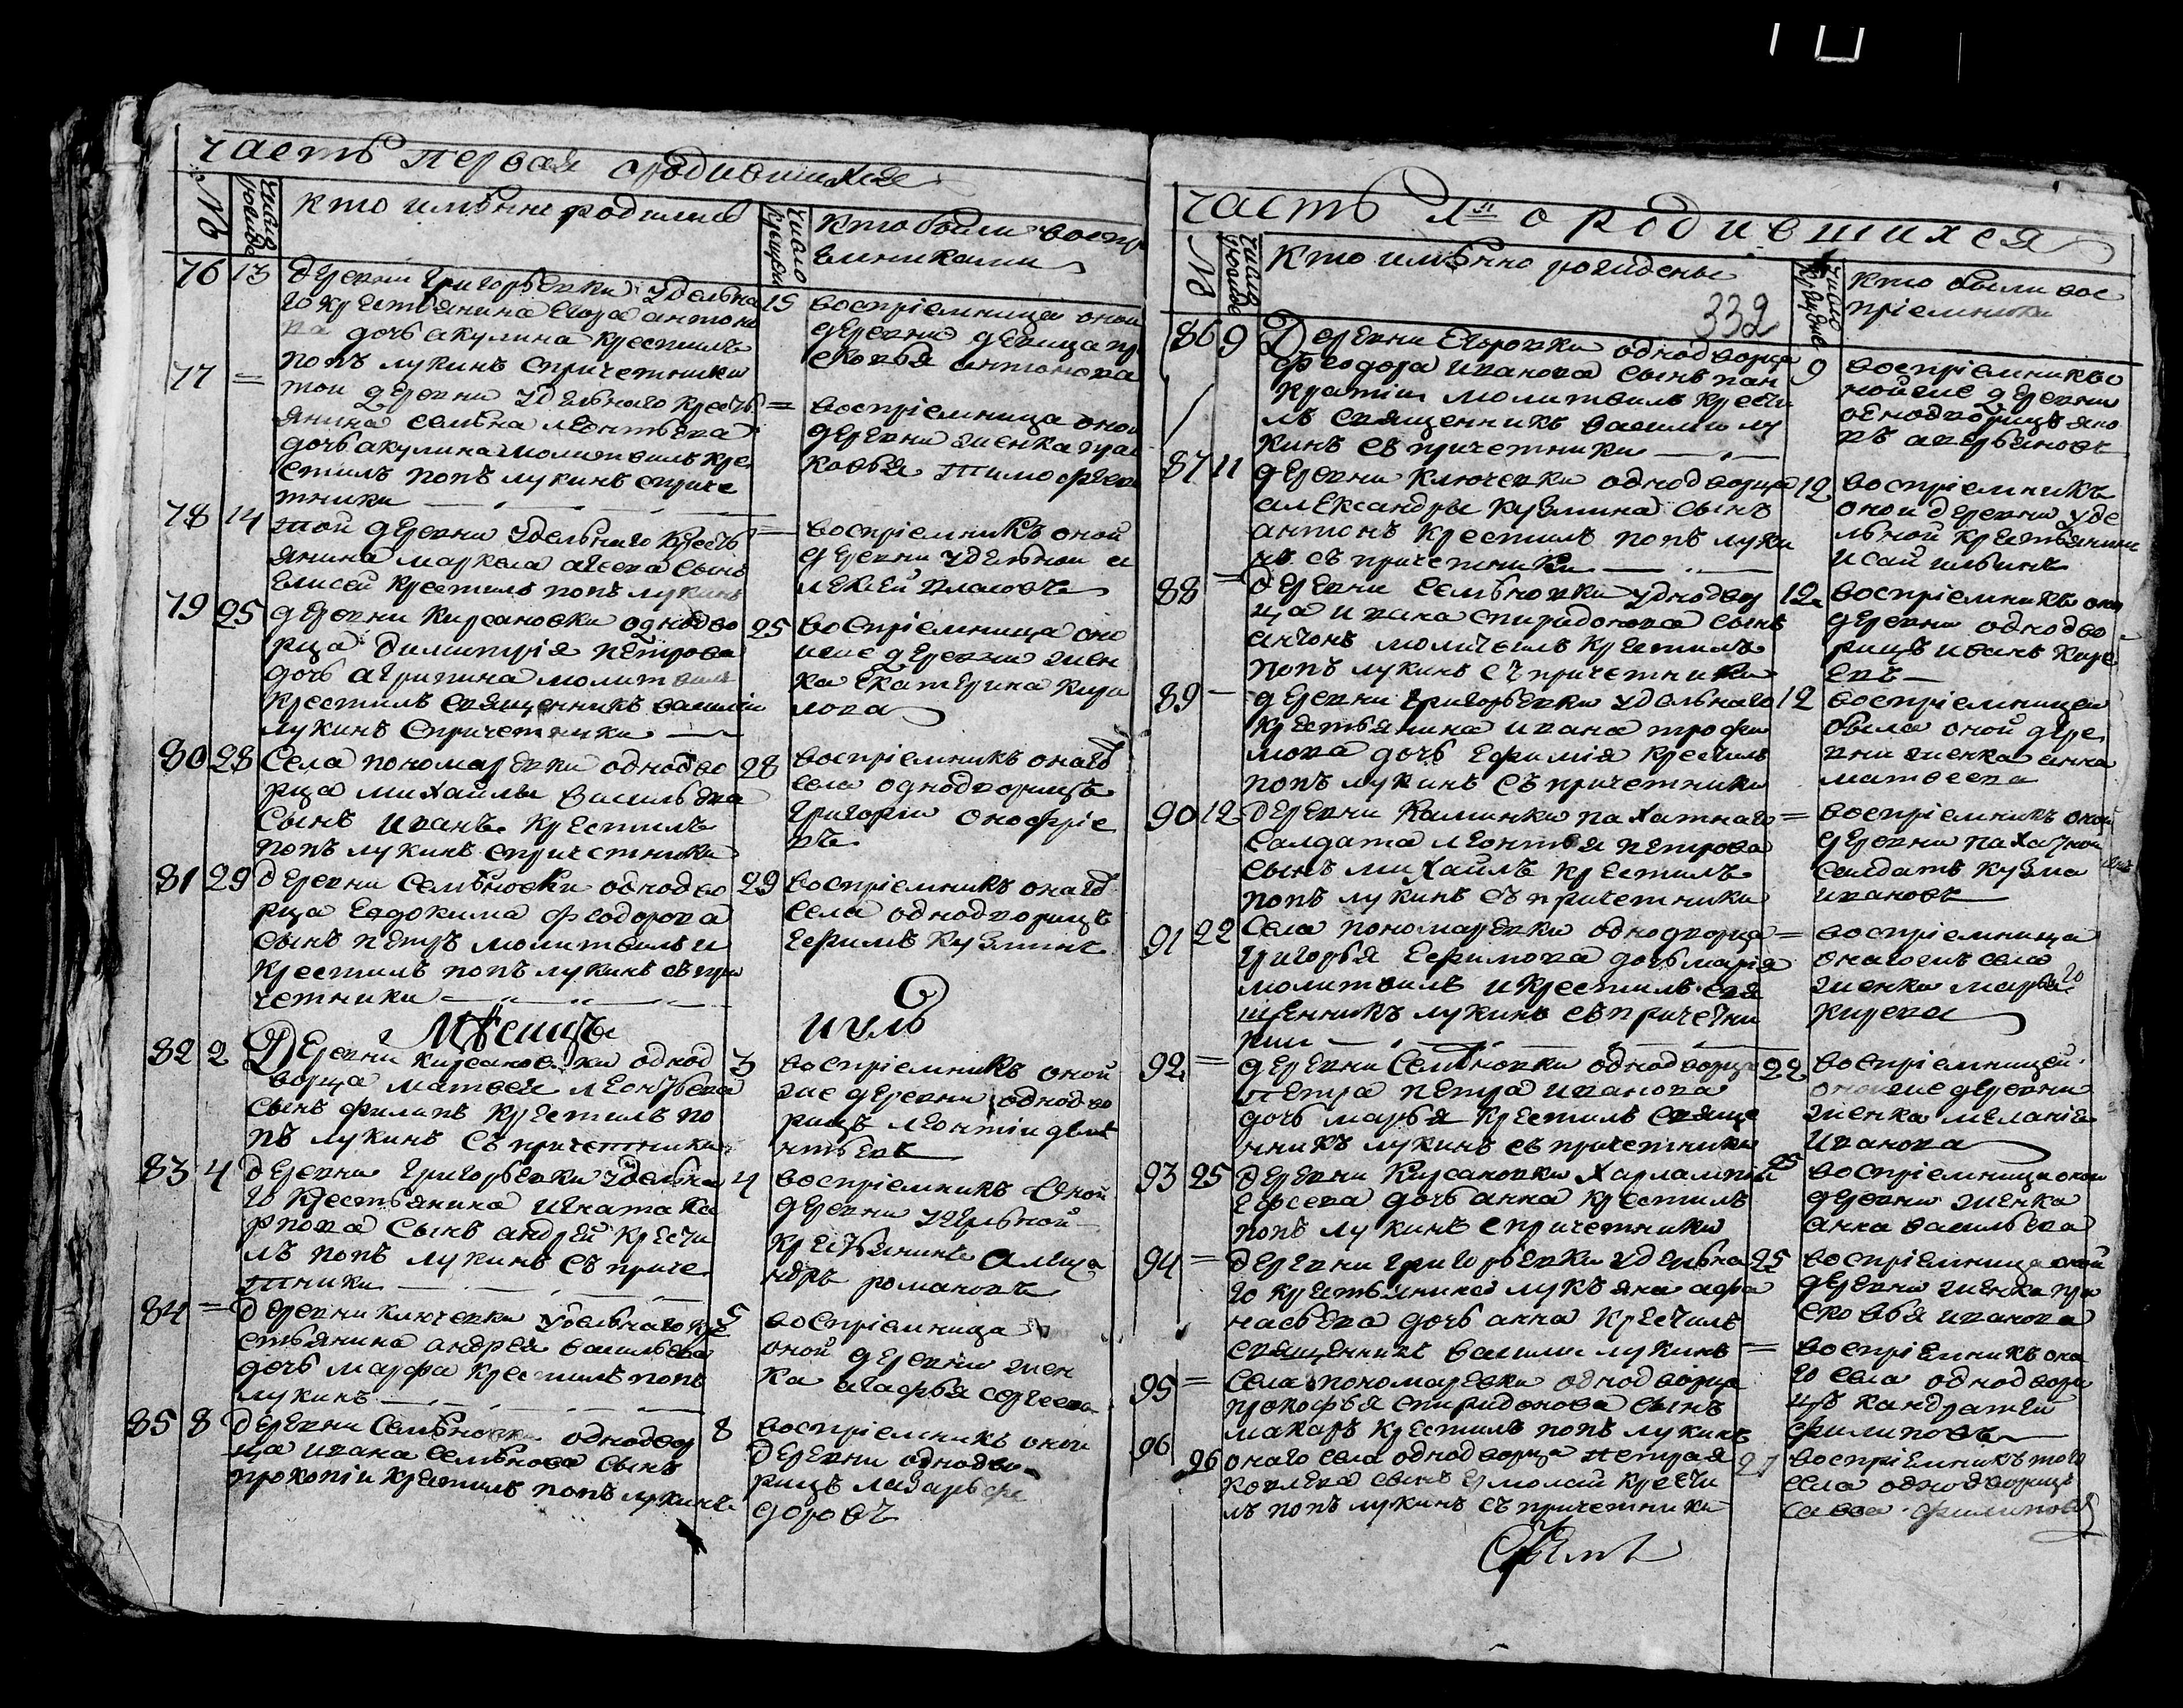 часть первая ородившихся
№
число рожде
кто имѣнно родились
число крещени
кто были воспр
емниками
76 13
деревни Григорьевки удѣлна
го крестьянина Егора антоно
ва дочь акулина крестилъ
попъ лукинъ спричетники
15
воспріемница оной
деревни девица пр
сковья антонова
77 =
той деревни удѣльнаго кресть
янина семѣна леонтьева
дочь акулина молитвилъ кре
стилъ попъ лукинъ сприче
тники
=
воспріемница оной
деревни женка пра
ковья тимофеев
78 14
той деревни удѣльнаго кресть
янина маркела агеева сынъ
елисей крестилъ попъ лукинъ
=
воспріемникъ оной
деревни удѣлной
79 25
деревни Кирсановки однодво
рца димитрія петрова
дочь агрипина молитвилъ
крестилъ священникъ василіи
лукинъ спричетники
25
воспріемница оно
иже деревни жен
ка екатерина кири
лова
80 28
Села пономаревки однодво
рца михайлы васильева
сынъ иванъ крестилъ
попъ лукинъ спричетники
28
воспріемникъ онагѡ
села однодворецъ
григории онофріе
въ
81 29
деревни Семѣновки однодво
рца Евдокима феодорова
сынъ петръ молитвилъ и
крестилъ попъ лукинъ съ при
четники
29
воспріемникъ онагѡ
села однодворецъ
ефимъ кузминъ
Мѣсяцъ июль
82 2
Деревни кирсановки однод
ворца матвея леонтьева
сынъ филипъ крестилъ по
пъ лукинъ съ причетники
3
воспріемникъ оной
же деревни однодво
рецъ леонтіи
83 4
деревни григорьевки удѣлна
го крестьянина игната ка
рпова сынъ андрей крести
лъ попъ лукинъ съ приче
тники
4
воспріемникъ оной
деревни удѣлной
крестьянинъ алекса
ндръ романовъ
84 =
деревни ключевки удѣльнаго кре
стьянина андрея васильева
дочь марфа крестилъ попъ
лукинъ
5
воспріемница
оной деревни жен
ка агафья сергеева
85 8
деревни Семѣновки однодвор
ца ивана семѣнова сынъ
прокопіи крестилъ попъ лукинъ
8
воспріемникъ оной
деревни однодво
рецъ лазарь фе
доровъ
часть 1я о родившихся
№
число рожде
кто имѣнно рождены
332
число крещение
кто были вос
пріемники
86 9
Деревни Егоровки однодворца
феодора иванова сынъ пан
кратіи молитвилъ крести
лъ священникъ василии лу
кинъ съ причетники
9
воспріемникъ о
ной же деревни
однодворецъ яко
въ аверьяновъ
87 11
деревни Ключевки однодворца
александры кузмина сынъ
антонъ крестилъ попъ луки
нъ съ причетники
12
воспріемникъ
оной деревни уде
льной крестьянинъ
исай ильинъ
88 =
деревни семѣновки однодвор
ца ивана спиридонова сынъ
антонъ молитвилъ крестилъ
попъ лукинъ съ причетники
12
воспріемникъ оной
деревни однодво
рецъ иванъ каре
евъ
89 -
деревни григорьевки удѣльнаго
крестьянина ивана трофи
мова дочь ефимія крестилъ
попъ лукинъ съ причетники
12
воспріемницей
была оной дере
вни женка анна
матвеева
90 12
деревни Калинки пахатнаго
салдата леонтья петрова
сынъ михайлъ крестилъ
попъ лукинъ съ причетники
=
воспріемникъ оной
деревни пахатной
салдатъ кузма
ивановъ
91 22
Села пономаревки однодворца
григорья ефимова дочь марія
молитвилъ и крестилъ свя
щенникъ лукинъ съ причетни
ки
=
воспріемница
онагожъ села
женка марья
92 =
деревни Семѣновки однодворца
петра петра иванова
дочь марья крестилъ свяще
нникъ лукинъ съ причетники
22
воспріемницей
оной же деревни
женка меланія
иванова
93 25
деревни Кирсановки харлампія
евсеева дочь анна крестилъ
попъ лукинъ спричетники
25
воспріемница оной
деревни женка
анна васильева
94 =
деревни григорьевки удѣльна
го крестьянина лукьяна афа
насьева дочь анна крестилъ
священникъ василии лукинъ
25
воспріемница оной
деревни женка пра
сковья иванова
95 =
Села пономаревки однодворца
прокофья спиридонова сынъ
макаръ крестилъ попъ лукинъ
=
воспріемникъ она
го села однодвори
цъ кандратей
филиповъ
96 26
онаго села однодворца петра я
ковлева сынъ ермолай крести
лъ попъ лукинъ съ причетники
27
воспріемникъ того
села однодворецъ
савва филиповъ